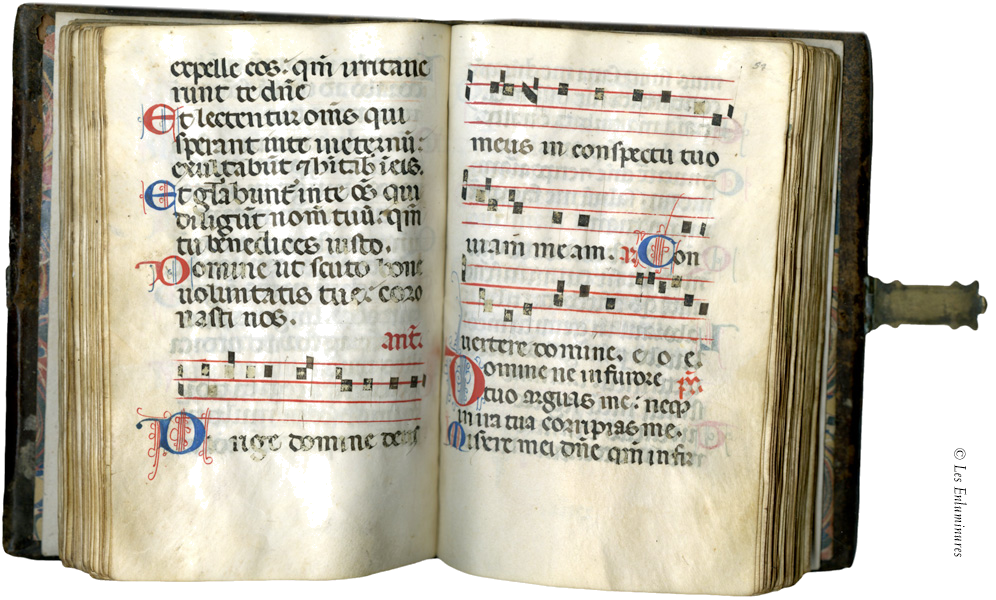 expelle eos: qm̄ irritaue
runt te dn̄e
Et lectentur oms̄ qui
sperant in te in eternū:
exultabūt ⁊ hītab̄ ī eis.
Et gl̄abunt̄ in te oēs qui
diligūt nom̄ tuū: qm̄
tu benedices iusto.
Domine ut scuto bone
uoluntatis tue: coro
nasti nos.
ant̄.
Dirige domine deus
54
meus in conspectu tuo
uiam meam. Con
uertere domine. e o e
Domine ne in furore
p̄s.
tuo arguas me: neqꝫ
in ira tua corripias me.
Misere mei dn̄e qm̄ infir
© Les Enluminures